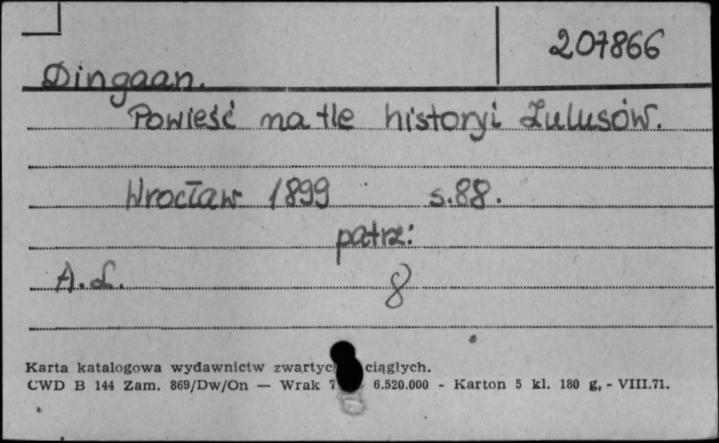 207866
Dingaan.
Powieść na tle historyi Zulusów.
Wrocław 1899 s.88.
patrz:
A.L. 8
Karta katalogowa wydawnictw ciągłych.
CWD B 144 Zam. 869/Dw/On — Wrak 6.520.000 - Karton 5 kl. 180 g, - VIII.71.